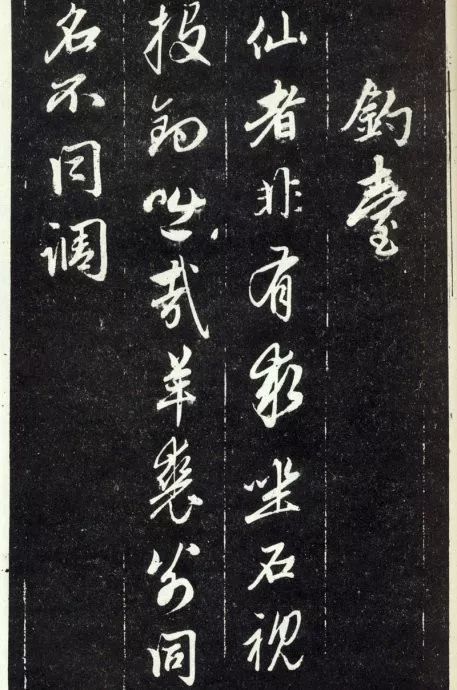 釣臺
仙者非有求坐石視
投釣咄哉羊裘翁同
名不同調